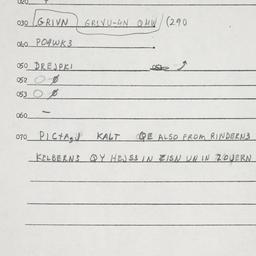 020
030 GRIVN GRIVU-GN QHW (290
040 POAWK3
050 DREJPKI
052
053
060 -
070 PICTAGJ KALT QE ALSO FROM RINDERNS
KELBERNS QY HEJSS IN ZISN UN IN ZOJERN